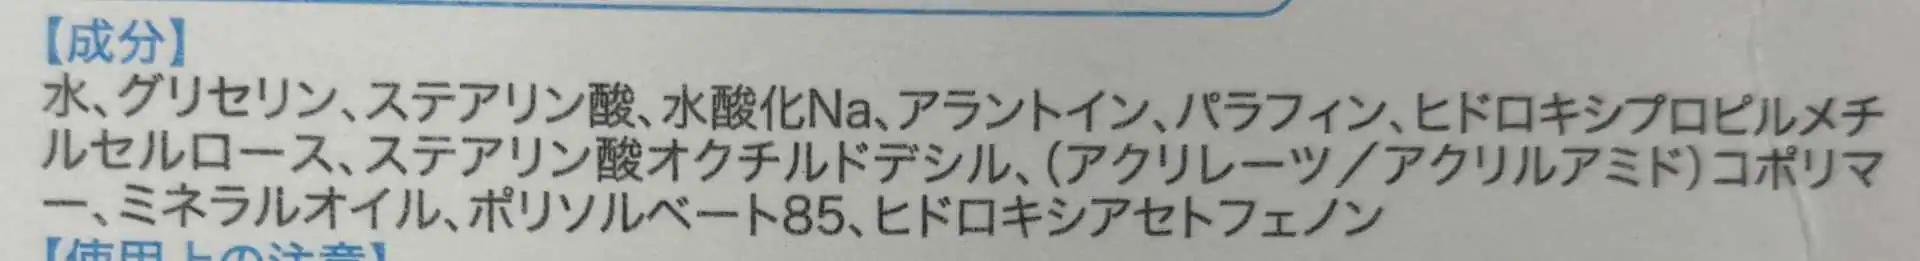 【成分】
水、グリセリン、ステアリン酸、水酸化Na、アラントイン、パラフィン、ヒドロキシプロピルメチ
ルセルロース、ステアリン酸オクチルドデシル、(アクリレーツ／アクリルアミド)コポリマ
ー、ミネラルオイル、ポリソルベート85、ヒドロキシアセトフェノン
【使用上の注意】